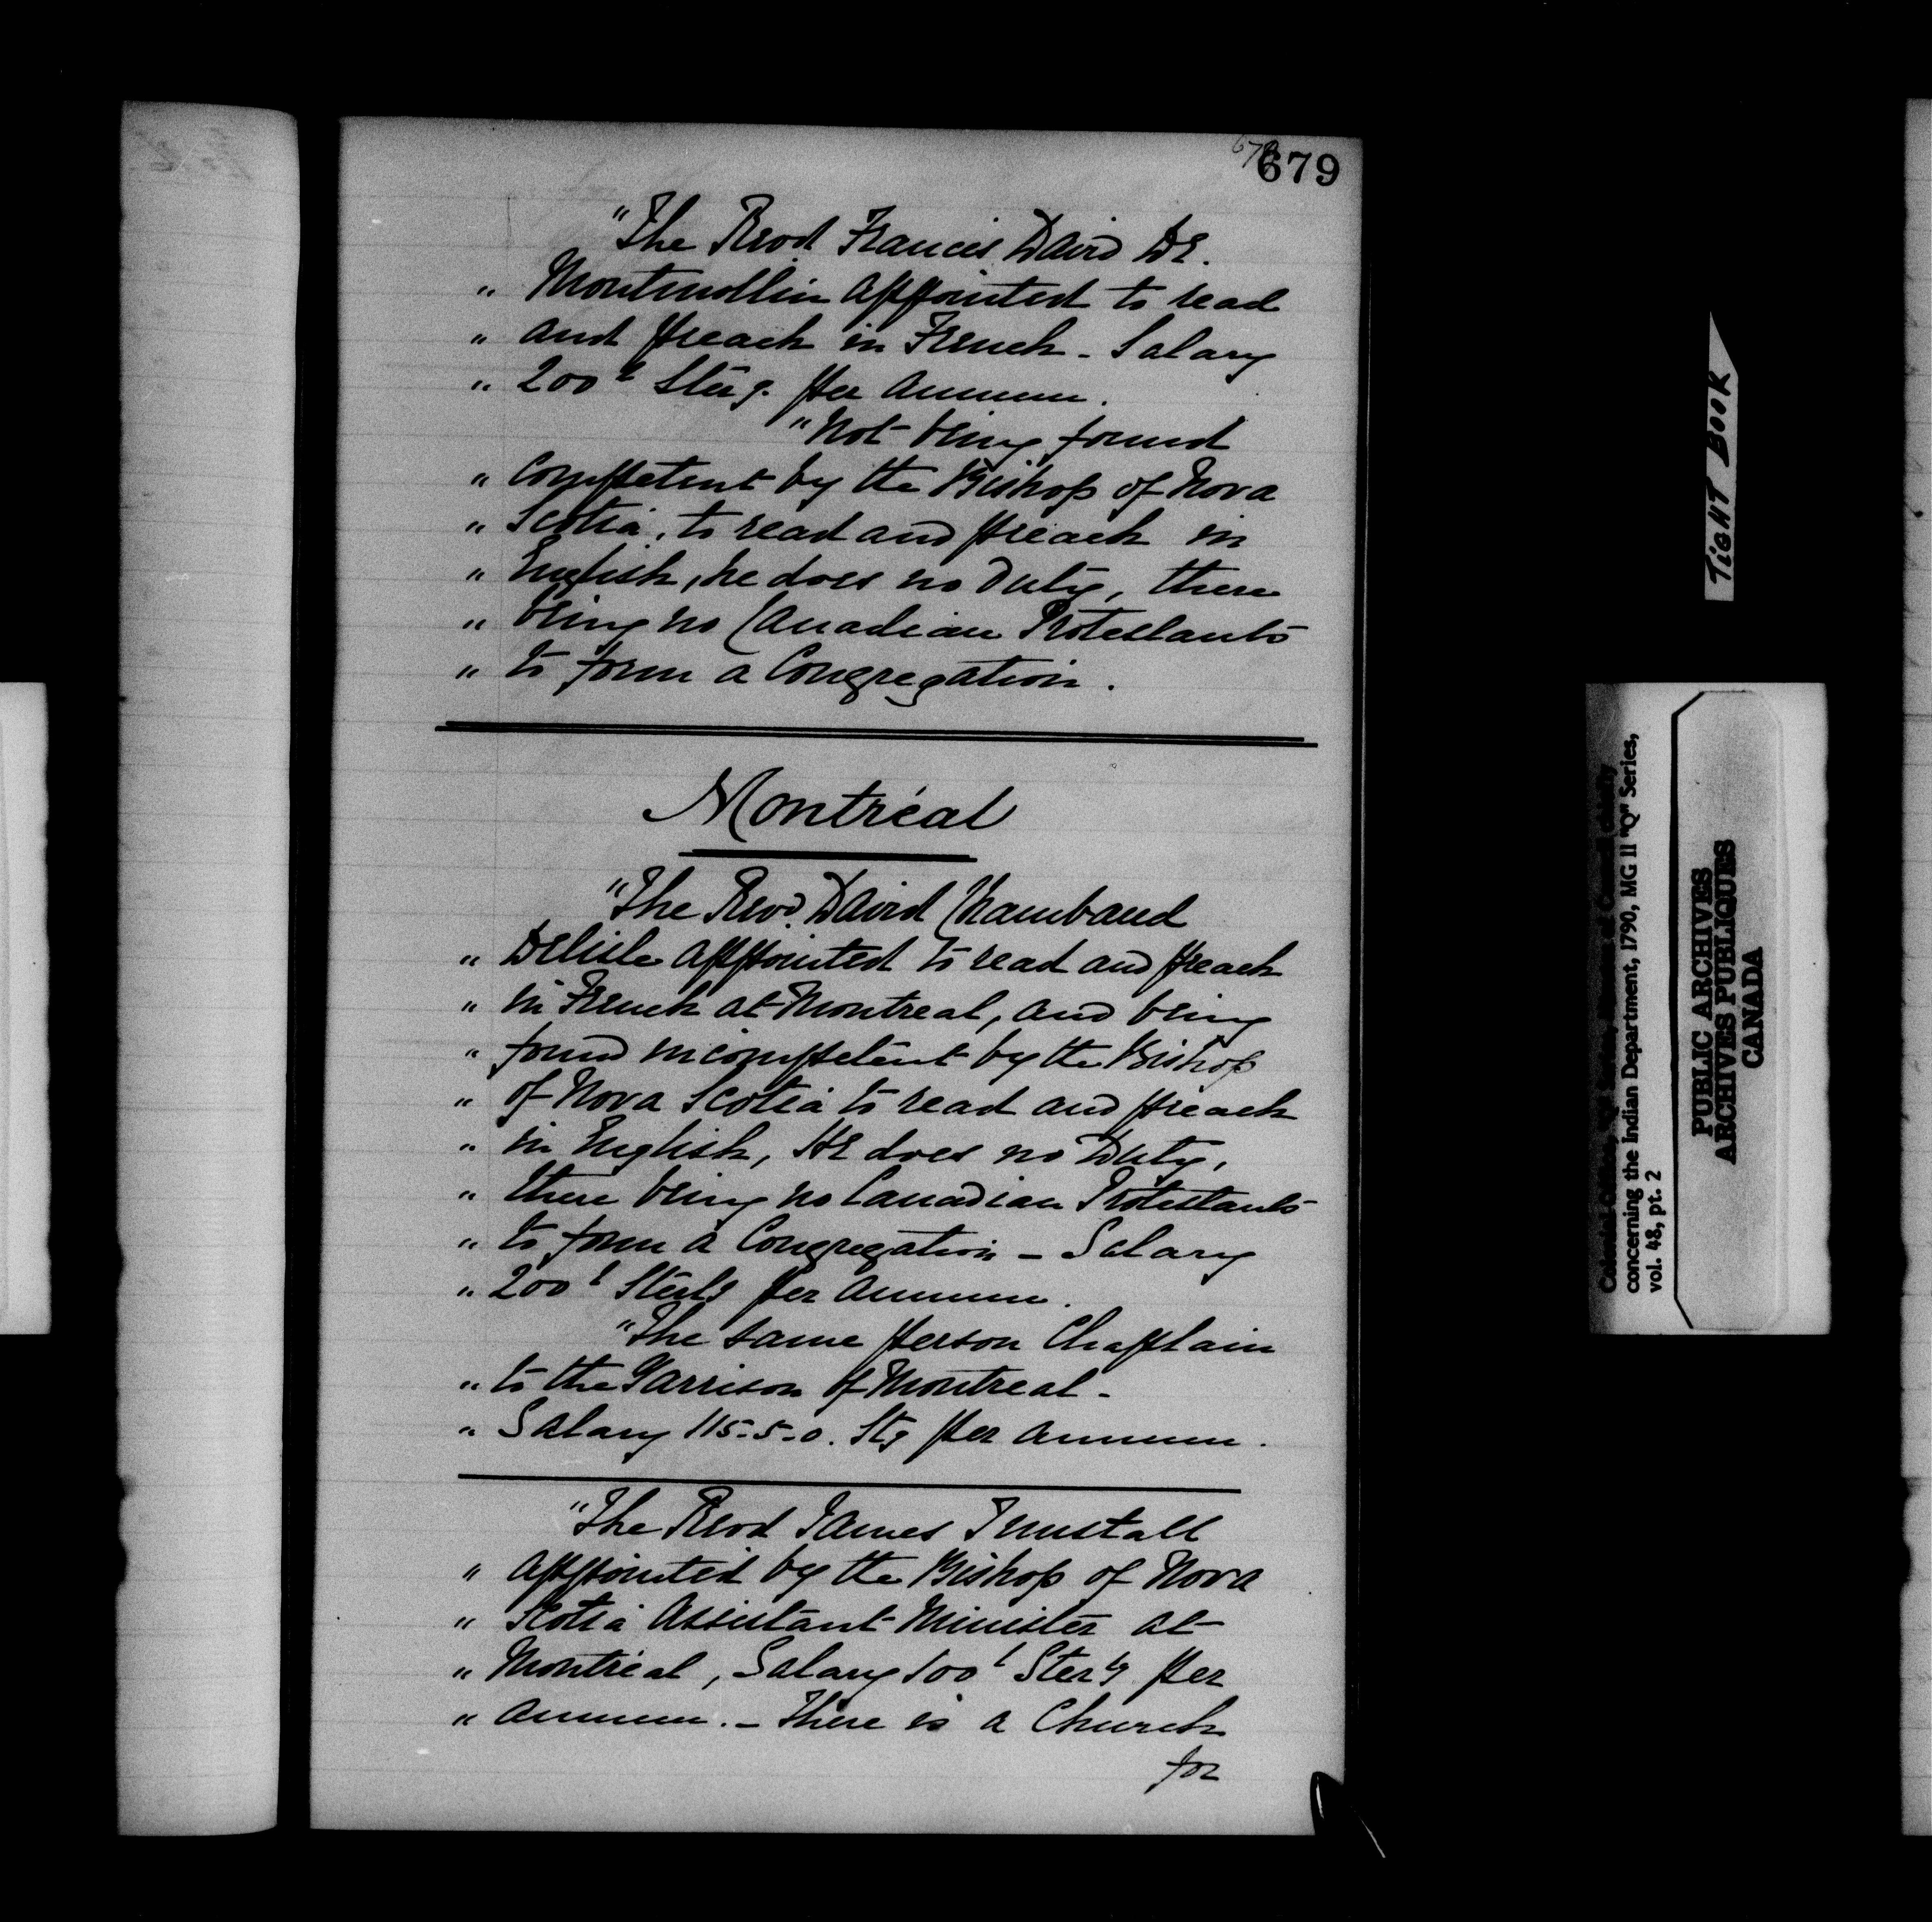 679
"The Revd Francis David De.
" Montmollin appointed to read
" and preach in French - Salary
" 200£ Sterg. per annum.
"Not being found
" Competent by the Bishop of Nova
" Scotia, to read and preach in
" English, he does no Duty, there
" being no Canadian Protestants
" to form a Congregation.
Montréal
"The Revd. David Chambaud
" Delisle appointed to read and preach
" in French at Montreal, and being
" found incompetent by the Bishop
" of Nova Scotia to read and preach
" in English, He does no Duty,
" there being no Canadian Protestants
" to form a Congregation - Salary
" 200£ Sterlg per annum.
"The same person Chaplain
" to the Garrison of Montreal -
" Salary 115-5-0. Stg per annum.
"The Revd James Tunstall
" appointed by the Bishop of Nova
" Scotia Assistant Minister at
" Montreal, Salary 100£ Sterlg per
" annum. - There is a Church
for
TIGHT BOOK
concerning the Indian Department, 1790, MG 11 "Q" Series,
vol. 48, pt. 2
PUBLIC ARCHIVES
ARCHIVES PUBLIQUES
CANADA